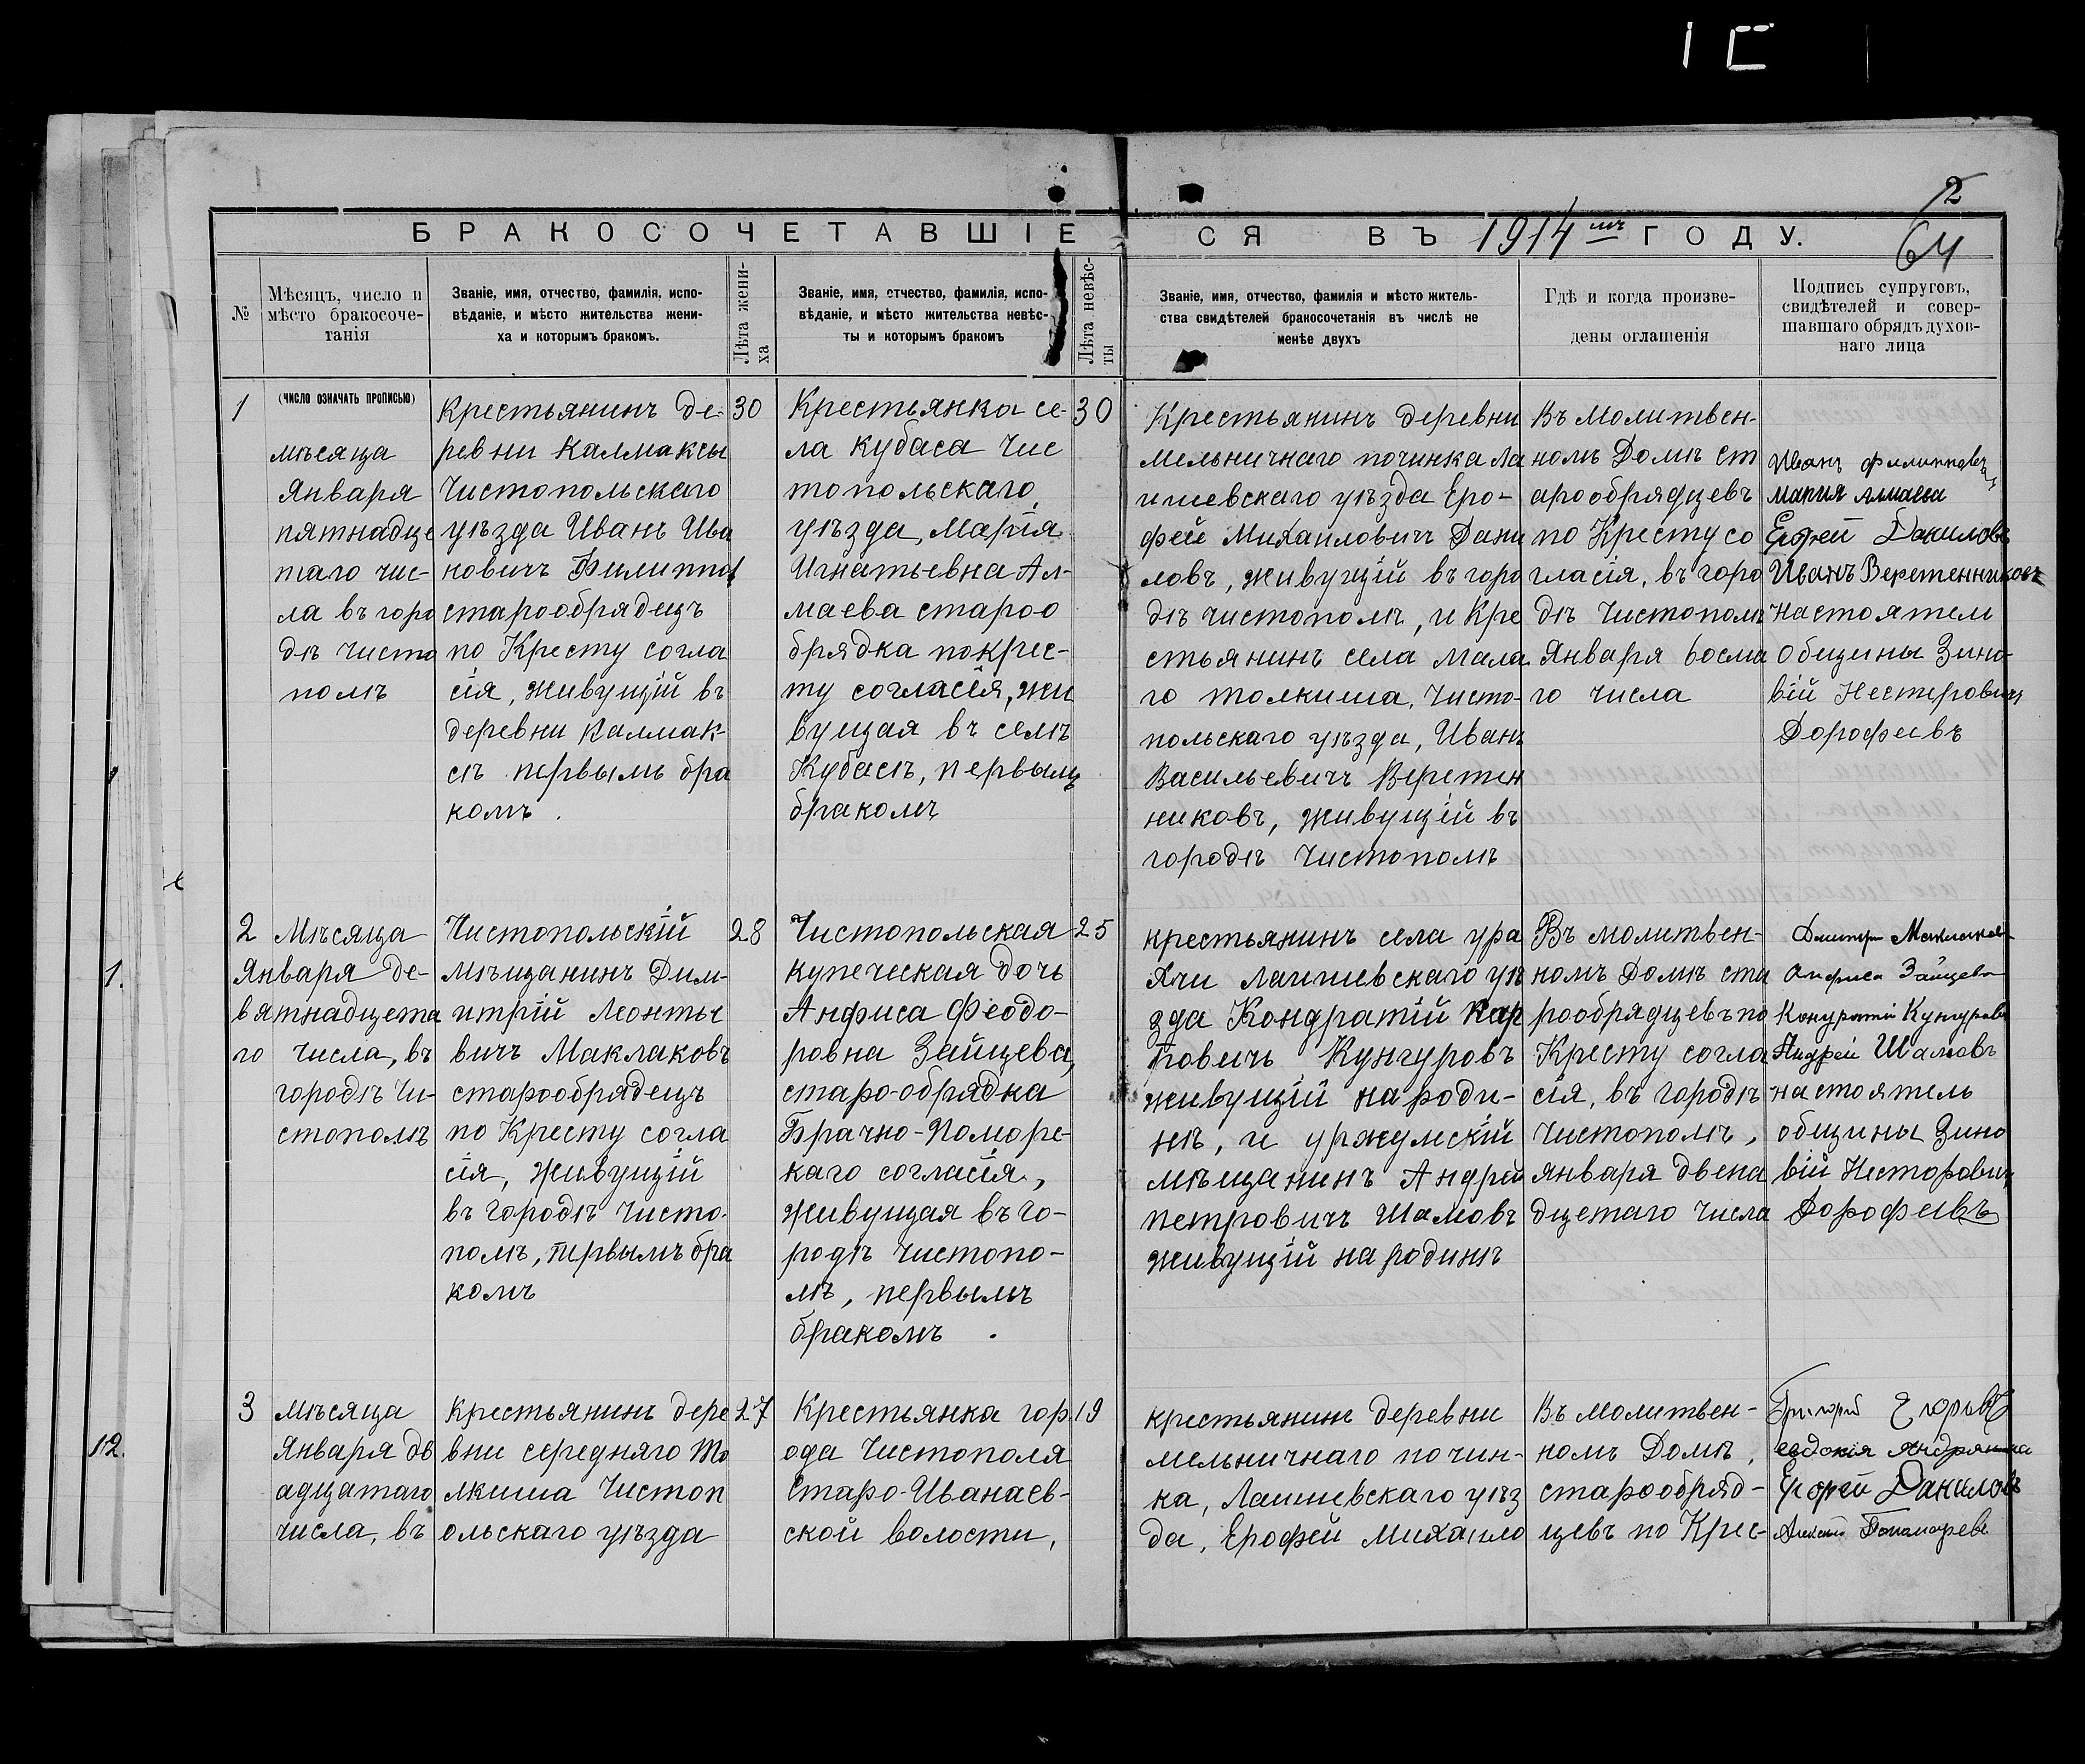 1 С
2
64
БРАКОСОЧЕТАВШІЕ
СЯ ВЪ 1914 мъ ГОДУ.
№
Мѣсяцъ, число и
мѣсто бракосоче-
танія
Званіе, имя, отчество, фамилія, испо-
вѣданіе, и мѣсто жительства жени-
ха и которымъ бракомъ.
Лѣта жени-
ха
Званіе, имя, отчество, фамилія, испо-
вѣданіе, и мѣсто жительства невѣс-
ты и которымъ бракомъ
Лѣта невѣс-
ты
Званіе, имя, отчество, фамилія и мѣсто житель-
ства свидѣтелей бракосочетанія въ числѣ не
менѣе двухъ
Гдѣ и когда произве-
дены оглашенія
Подпись супруговъ,
свидѣтелей и совер-
шавшаго обрядъ духов-
наго лица
1
(ЧИСЛО ОЗНАЧАТЬ ПРОПИСЬЮ)
мѣсяца
Января
пятнадце
таго чис-
ла въ горо
дѣ чисто
полѣ
Крестьянинъ де-
ревни Калмаксы
Чистопольскаго
уѣзда Иванъ Ива
новичъ Филиппов
старообрядецъ
по Кресту согла
сія, живущій въ
деревни Калмак-
сѣ первымъ бра
комъ.
30
Крестьянка се-
ла Кубаса Чис
топольскаго
уѣзда, Марія
Игнатьевна Ал-
маева староо
брядка покрес-
ту согласія, жи
вущая въ селѣ
Кубасѣ, первымъ
бракомъ
30
Крестьянинъ деревни
мельничнаго починка Ла
ишевскаго уѣзда Еро-
фей Михаиловичъ Дани
ловъ, живущій въ горо
дѣ чистополѣ, и Кре
стьянинъ села мала
го толкиша, Чисто-
польскаго уѣзда, Иванъ
Васильевичъ Веретен
никовъ, живущій въ
городѣ Чистополѣ
Въ молитвен-
номъ Домѣ ст
арообрядцевъ
по Кресту со
гласія, въ горо
дѣ Чистополѣ
Января восма
го числа
Иванъ Филипповъ
Мария Алмаева
Ерофей Даниловъ
Иванъ Веретенниковъ
настоятель
общины Зино-
вій Нестеровичъ
Дорофеевъ
2
Мѣсяца
Января де-
вятнадцета
го числа, въ
городѣ Чи-
стополѣ
Чистопольскій
мѣщанинъ Дим-
итрій Леонтье
вичъ Маклаковъ
старообрядецъ
по Кресту согла
сія, живущій
въ городѣ Чисто-
полѣ, первымъ бра
комъ
28
Чистопольская
купеческая дочь
Анфиса Феодо-
ровна Зайцева,
старо-обрядка
Брачно-Поморс-
каго согласія,
живущая въ го-
родѣ Чистопо-
лѣ, первымъ
бракомъ.
25
крестьянинъ села ура
хчи Лаишевскаго уѣ
зда Кондратій Кар
повичъ Кунгуровъ
живущій на роди-
нѣ, и уржумскій
мѣщанинъ Андрей
петровичъ Шамовъ
живущій на родинѣ
Въ молитвен-
номъ Домѣ ста
рообрядцевъ по
Кресту согла
сія, въ городѣ
Чистополѣ,
января двена
дцетаго числа
Дмитри Маклаковъ
Анфиса Зайцева
Кондратій Кунгуровъ
Андрей Шамовъ
настоятель
общины Зино
вій Несторовичъ
Дорофеевъ
3
Мѣсяца
Января дв
адцатаго
числа, въ
Крестьянинъ дере
вни середняго То
лкиша Чистоп
ольскаго уѣзда
27
Крестьянка гор
ода Чистополя
Старо-Иванаев-
ской волости,
19
крестьянинъ деревни
мельничнаго почин-
ка, Лаишевскаго уѣз
да, Ерофей Михаило
Въ молитвен-
номъ Домѣ,
старообряд-
цевъ по Крес-
Григорій Егоровъ
евдокія Андрянова
Ерофей Даниловъ
Алексей Пономаревъ
1.
12.